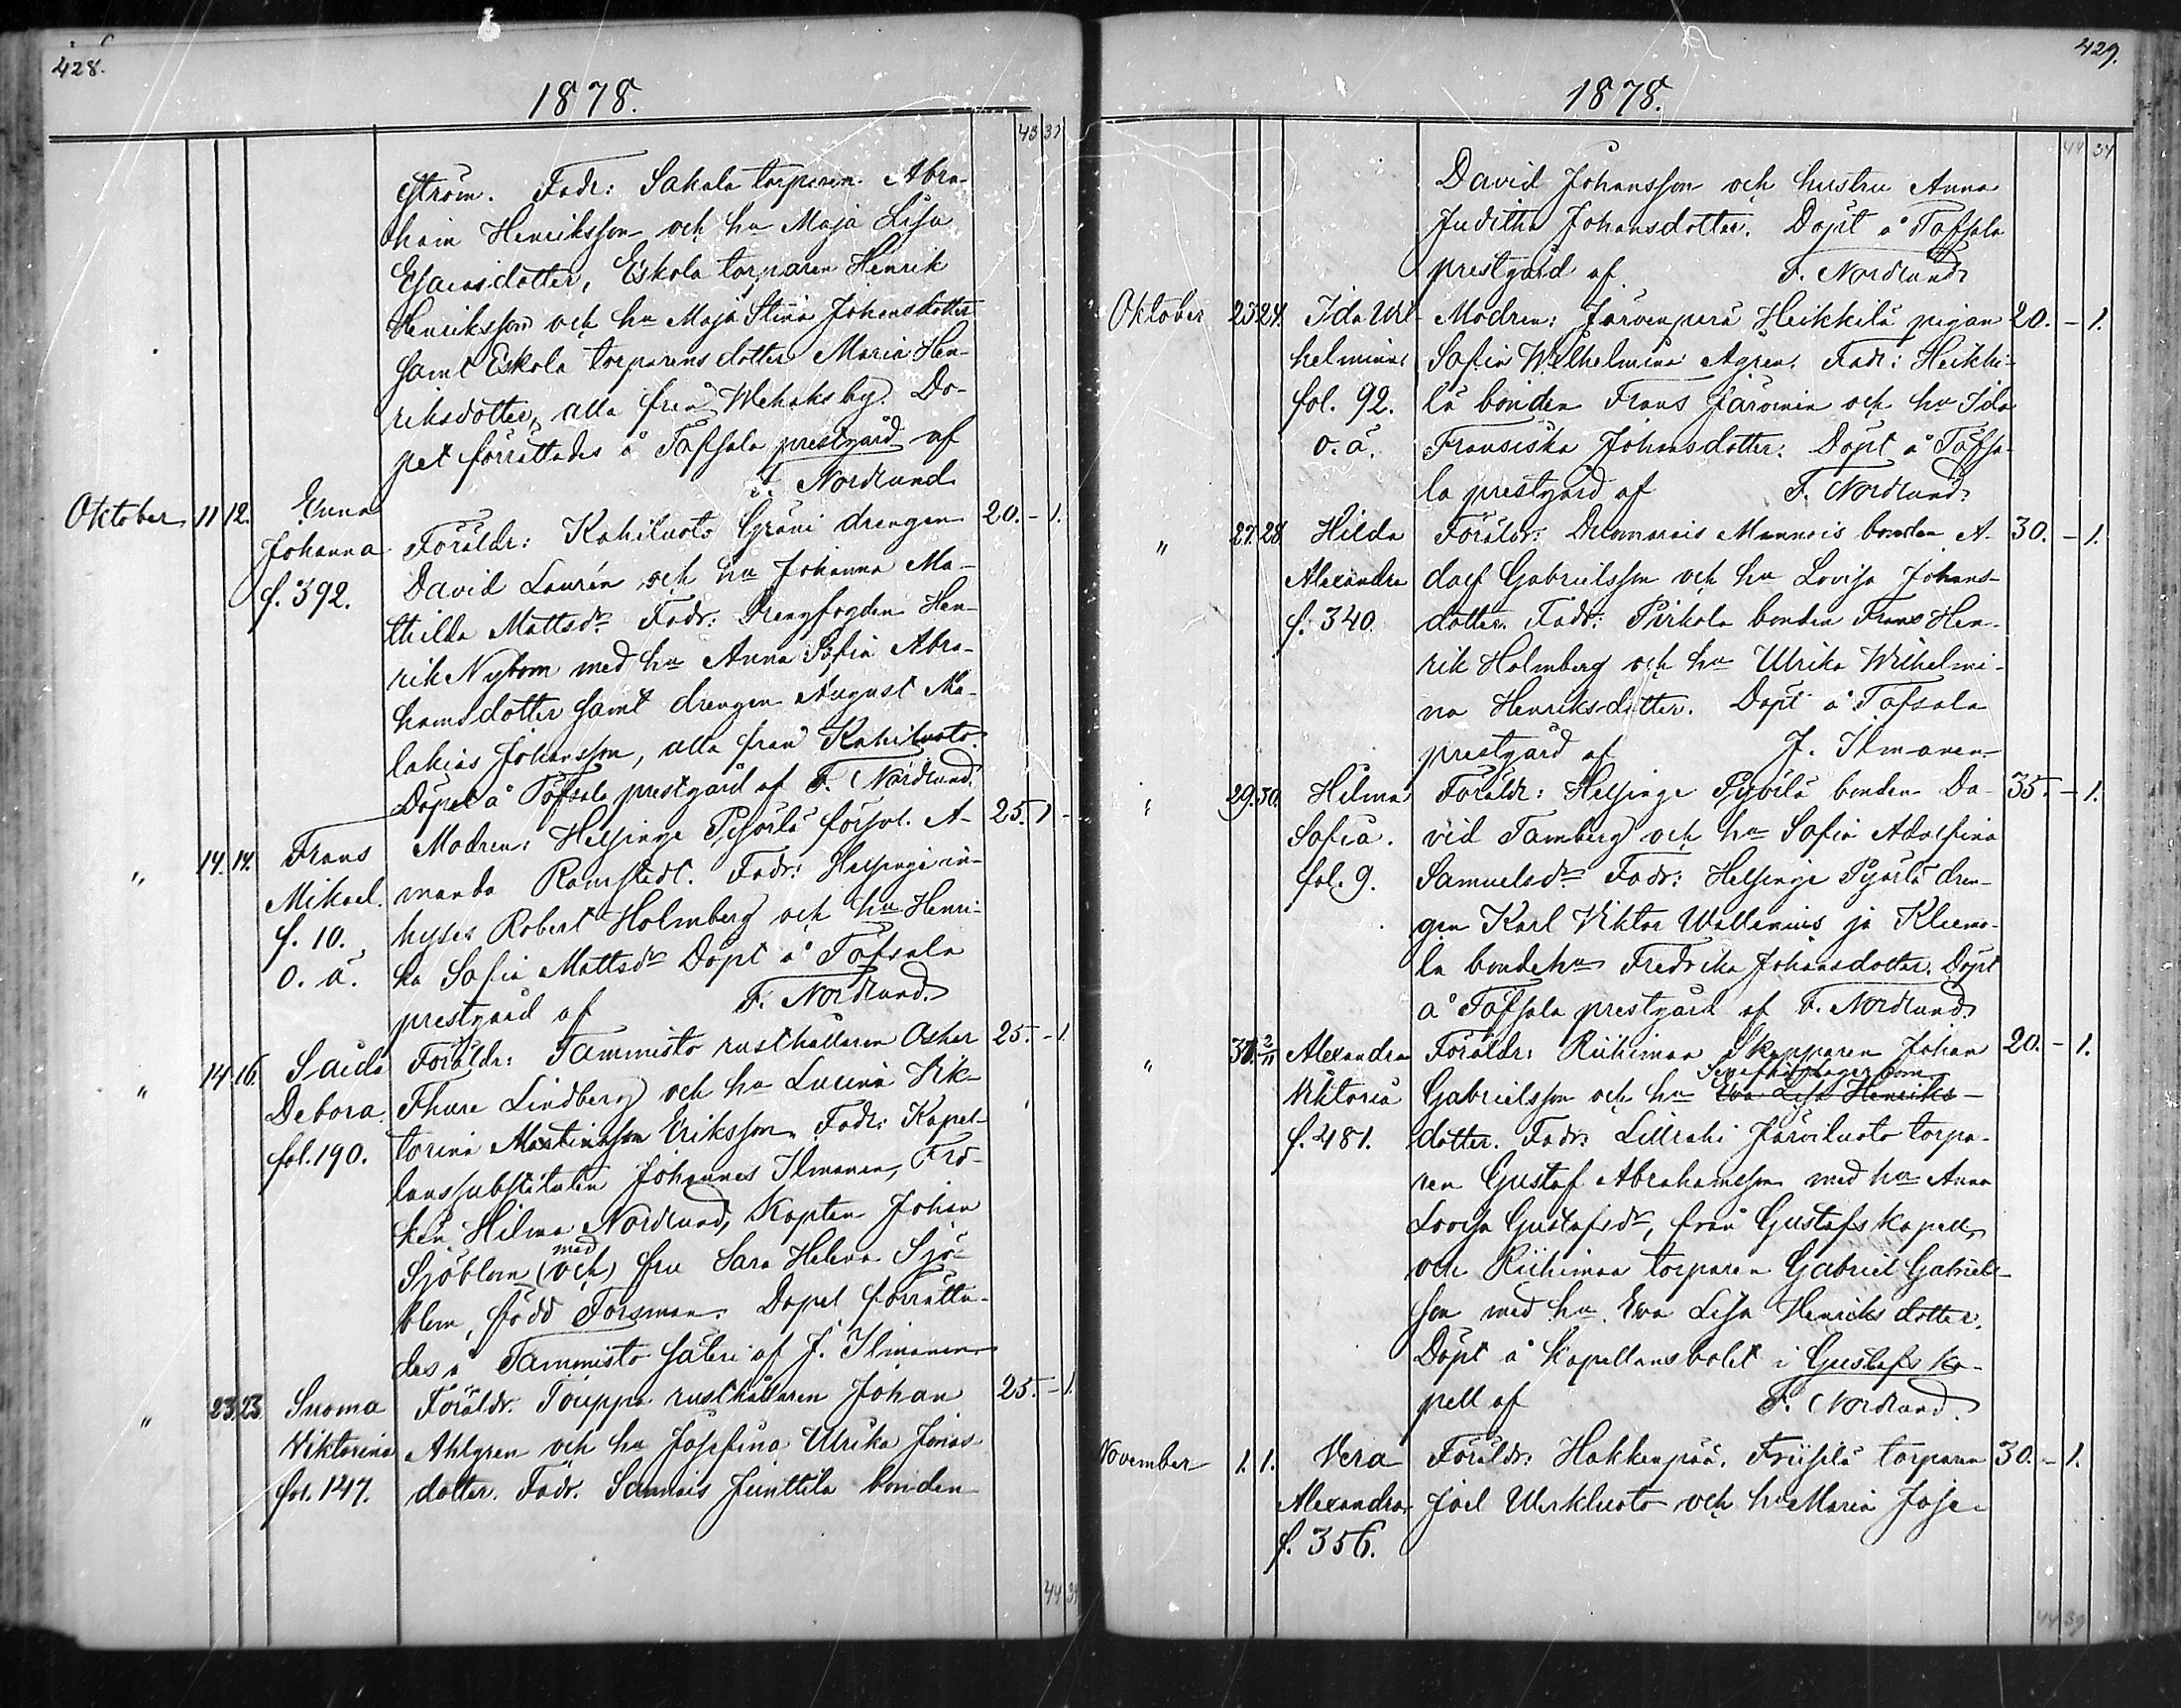 428.
1878.
43 37
ström. Fadr: Sakala torparen Abra-
ham Henriksson och hu Maja Lisa
Esaiasdotter, Eskola torparen Henrik
Henriksson och hu Maja Stina Johansdotter
samt Eskola torparens dotter Maria Hen-
riksdotter, alla från Wehaks by. Do-
pet förrättades å Töfsala prestgård af
F. Nordlund
Oktober 11 12. Enna Johanna f. 392.
Föräldr: Kahiluoto Gräni drengen 20. - 1.
David Laurén och hu Johanna Ma-
thilda Mattsdr. Fadr: Drengfogden Hen-
rik Nybom med hu Anna Sofia Abra-
hamsdotter samt drengen August Ma-
lakias Johansson, alla från Kahiluoto.
Döpet å Töfsala prestgård af F. Nordlund.
" 14. 14. Frans Mikael. f. 10. o. ä.
Modren: Helsinge Pyörlä försvl. A- 25. 1 -
manda Ramstedt. Fadr: Helsinge in-
hyses Robert Holmberg och hu Henri-
ka Sofia Mattsdr Döpt å Töfsala
prestgård af F. Nordlund.
" 14 16. Saida Debora. fol. 190.
Föräldr: Tammisto rusthållaren Oskar 25. - 1.
Thure Lindberg och hu Lucina Vik-
torina Martinsson Eriksson. Fadr: Kapel-
lanssubstituten Johannes Ilmanen, Frö-
ken Hilma Nordlund, Kapten Johan
med
Sjöblom (och) fru Sara Helena Sjö-
blom, född Forsman. Dopet förrätta-
des å Tammisto säteri af J. Ilmanen
" 23 23. Suoma Viktorina fol. 147.
Föräldr. Touppa rusthållaren Johan 25. - 1.
Ahlgren och hu Josefina Ulrika Jonas-
dotter. Fadr. Sannais Junttila bonden
44 34
429.
1878.
44 34
David Johansson och hustru Anna
Juditha Johansdotter. Döpt å Töfsala
prestgård af F. Nordlund
Oktober 23 24. Ida Wil- helmina fol. 92. o. ä.
Modren: Järvenperä Heikkilä pigan 20. - 1.
Sofia Wilhelmina Ågren. Fadr: Heikki-
lä bonden Frans Järvinen och hu Ida
Fransiska Johansdotter. Döpt å Töfsa-
la prestgård af F. Nordlund.
" 27. 28 Hilda Alexandra f. 340.
Föräldr: Mannais bonden A- 30. - 1.
dolf Gabrielsson och hu Lovisa Johans-
dotter. Fadr: Pirkola bonden Frans Hen-
rik Holmberg och hu Ulrika Wilhelmi-
na Henriksdotter. Döpt å Töfsala
prestgård af J. Ilmanen
" 29. 30. Hilma Sofia. fol. 9.
Föräldr: Helsinge Pyörlä bonden Da- 35. - 1.
vid Tamberg och hu Sofia Adolfina
Samuelsdr Fadr: Helsinge Pyörlä dren-
gen Karl Viktor Wallenius ja Kleemo-
la bondehu Fredrika Johansdotter. Döpt
å Töfsala prestgård af F. Nordlund
" 31. 2/11 Alexandra Viktoria f. 481.
Föräldr: Riihimaa Skepparen Johan 20. - 1.
Gabrielsson och hu Eva Lisa Henriks-
dotter. Fadr: Lillrahi Järviluoto torpa-
ren Gustaf Abrahamsson med hu Anna
Lovisa Gustafsdr, från Gustafs Kapell,
och Riihimaa torparen Gabriel Gabriels-
son med hu. Eva Lisa Henriksdotter.
Döpt å Kapellansbolet i Gustafs ka-
pell af F. Nordlund.
November 1. 1. Vera Alexandra f. 356.
Föräldr: Hakkenpää, Friiselä torparen 30. - 1.
Joel Uerkluoto och hu Maria Jose-
44 39